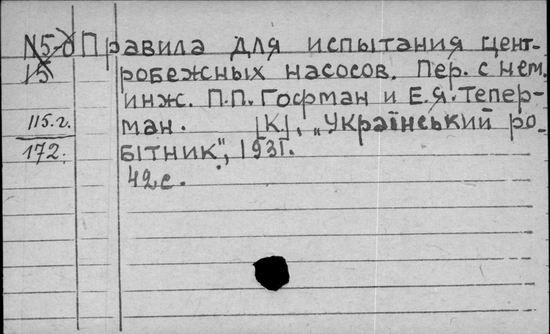 N5-д Правила для испытания цент-
15 робежных насосов. Пер. с нем.
инж. П.П. Гофман и Е.Я. Тепер-
115.г. ман. [К], „Український ро-
172. бітник", 1931.
42 с.